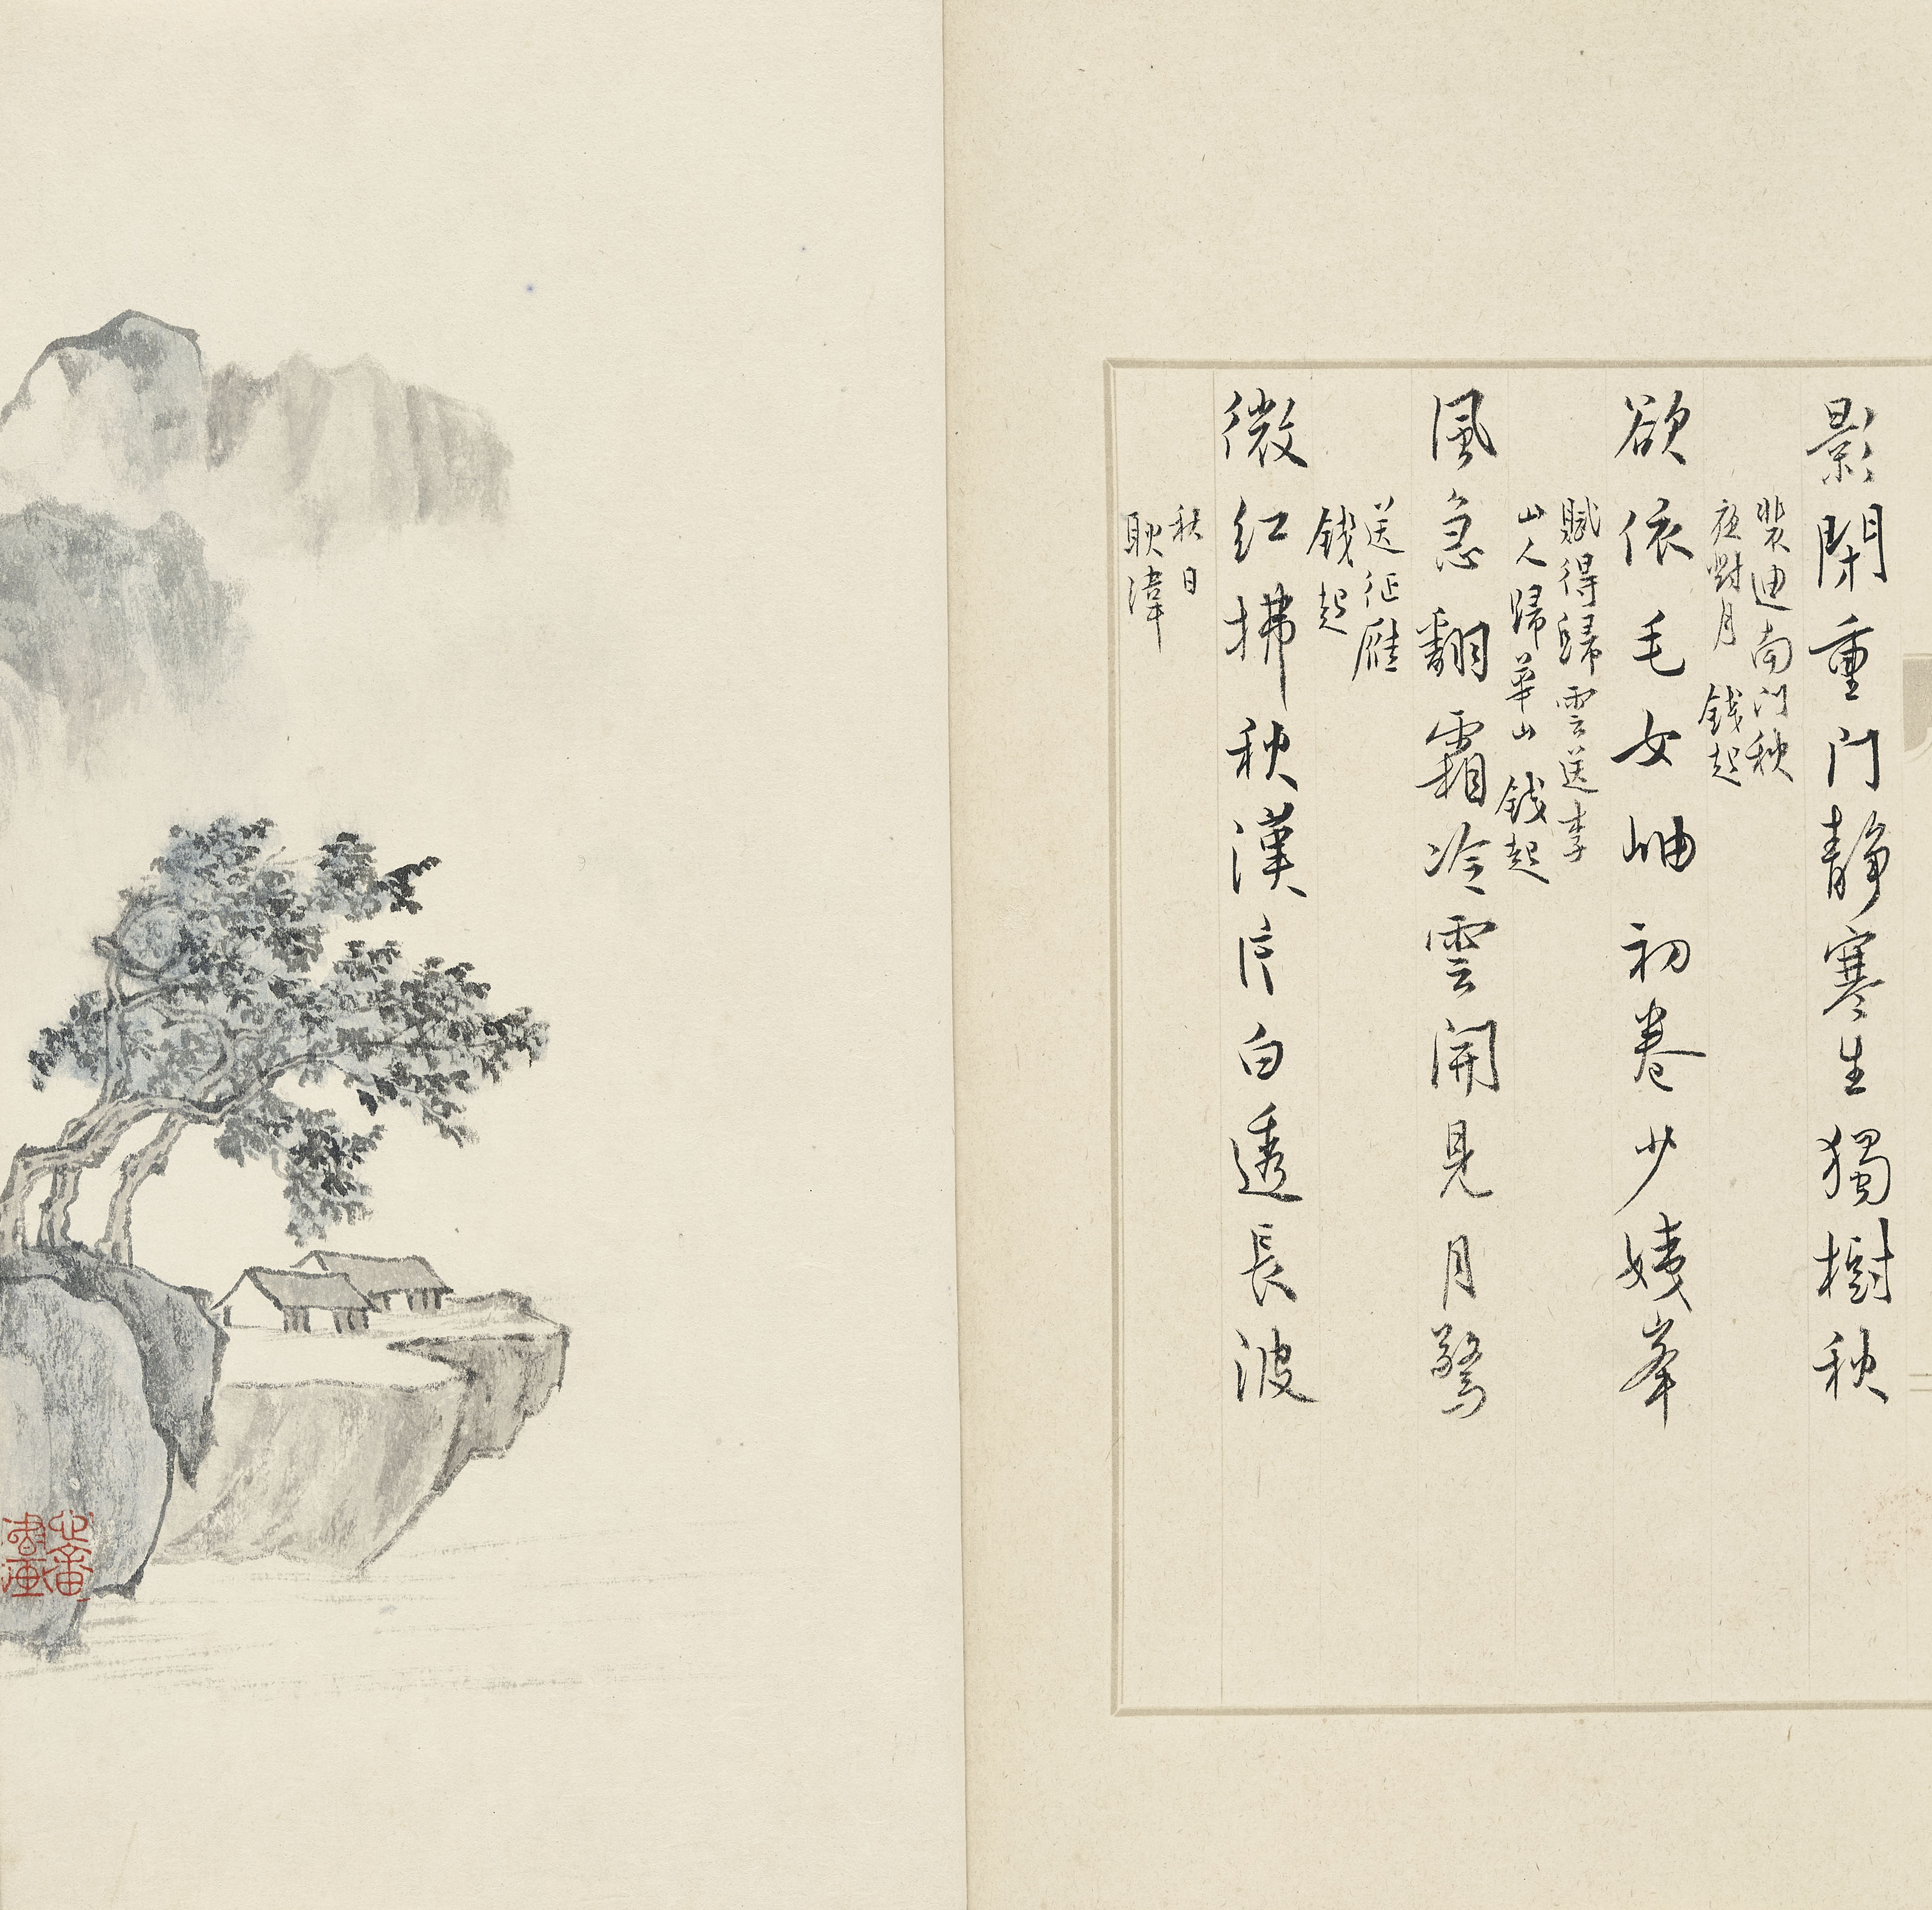 影閉重門靜寒生獨樹秋
裴迪南門秋
夜對月 錢起
欲依毛女岫初卷少姨峯
賦得歸雲送李
山人歸華山 錢起
風急翻霜冷雲開見月驚
送征雁
錢起
微紅拂秋漢片白透長波
秋日
耿湋
心畬
書畫